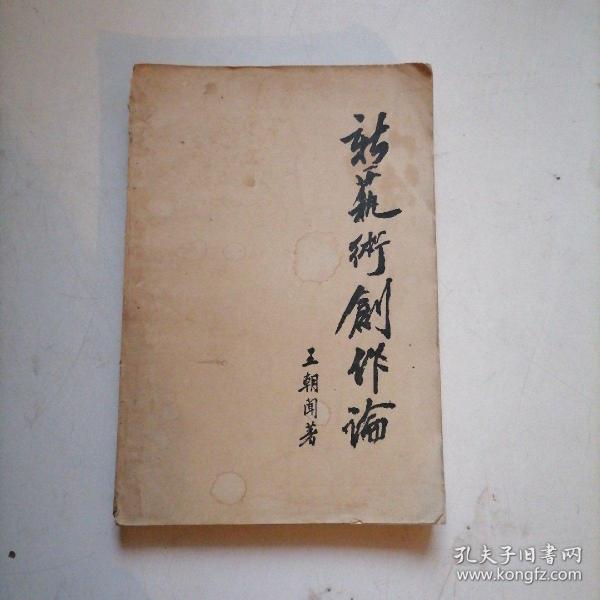 新藝術創作論
王朝闻著
孔夫子旧书网
www.kongfz.com